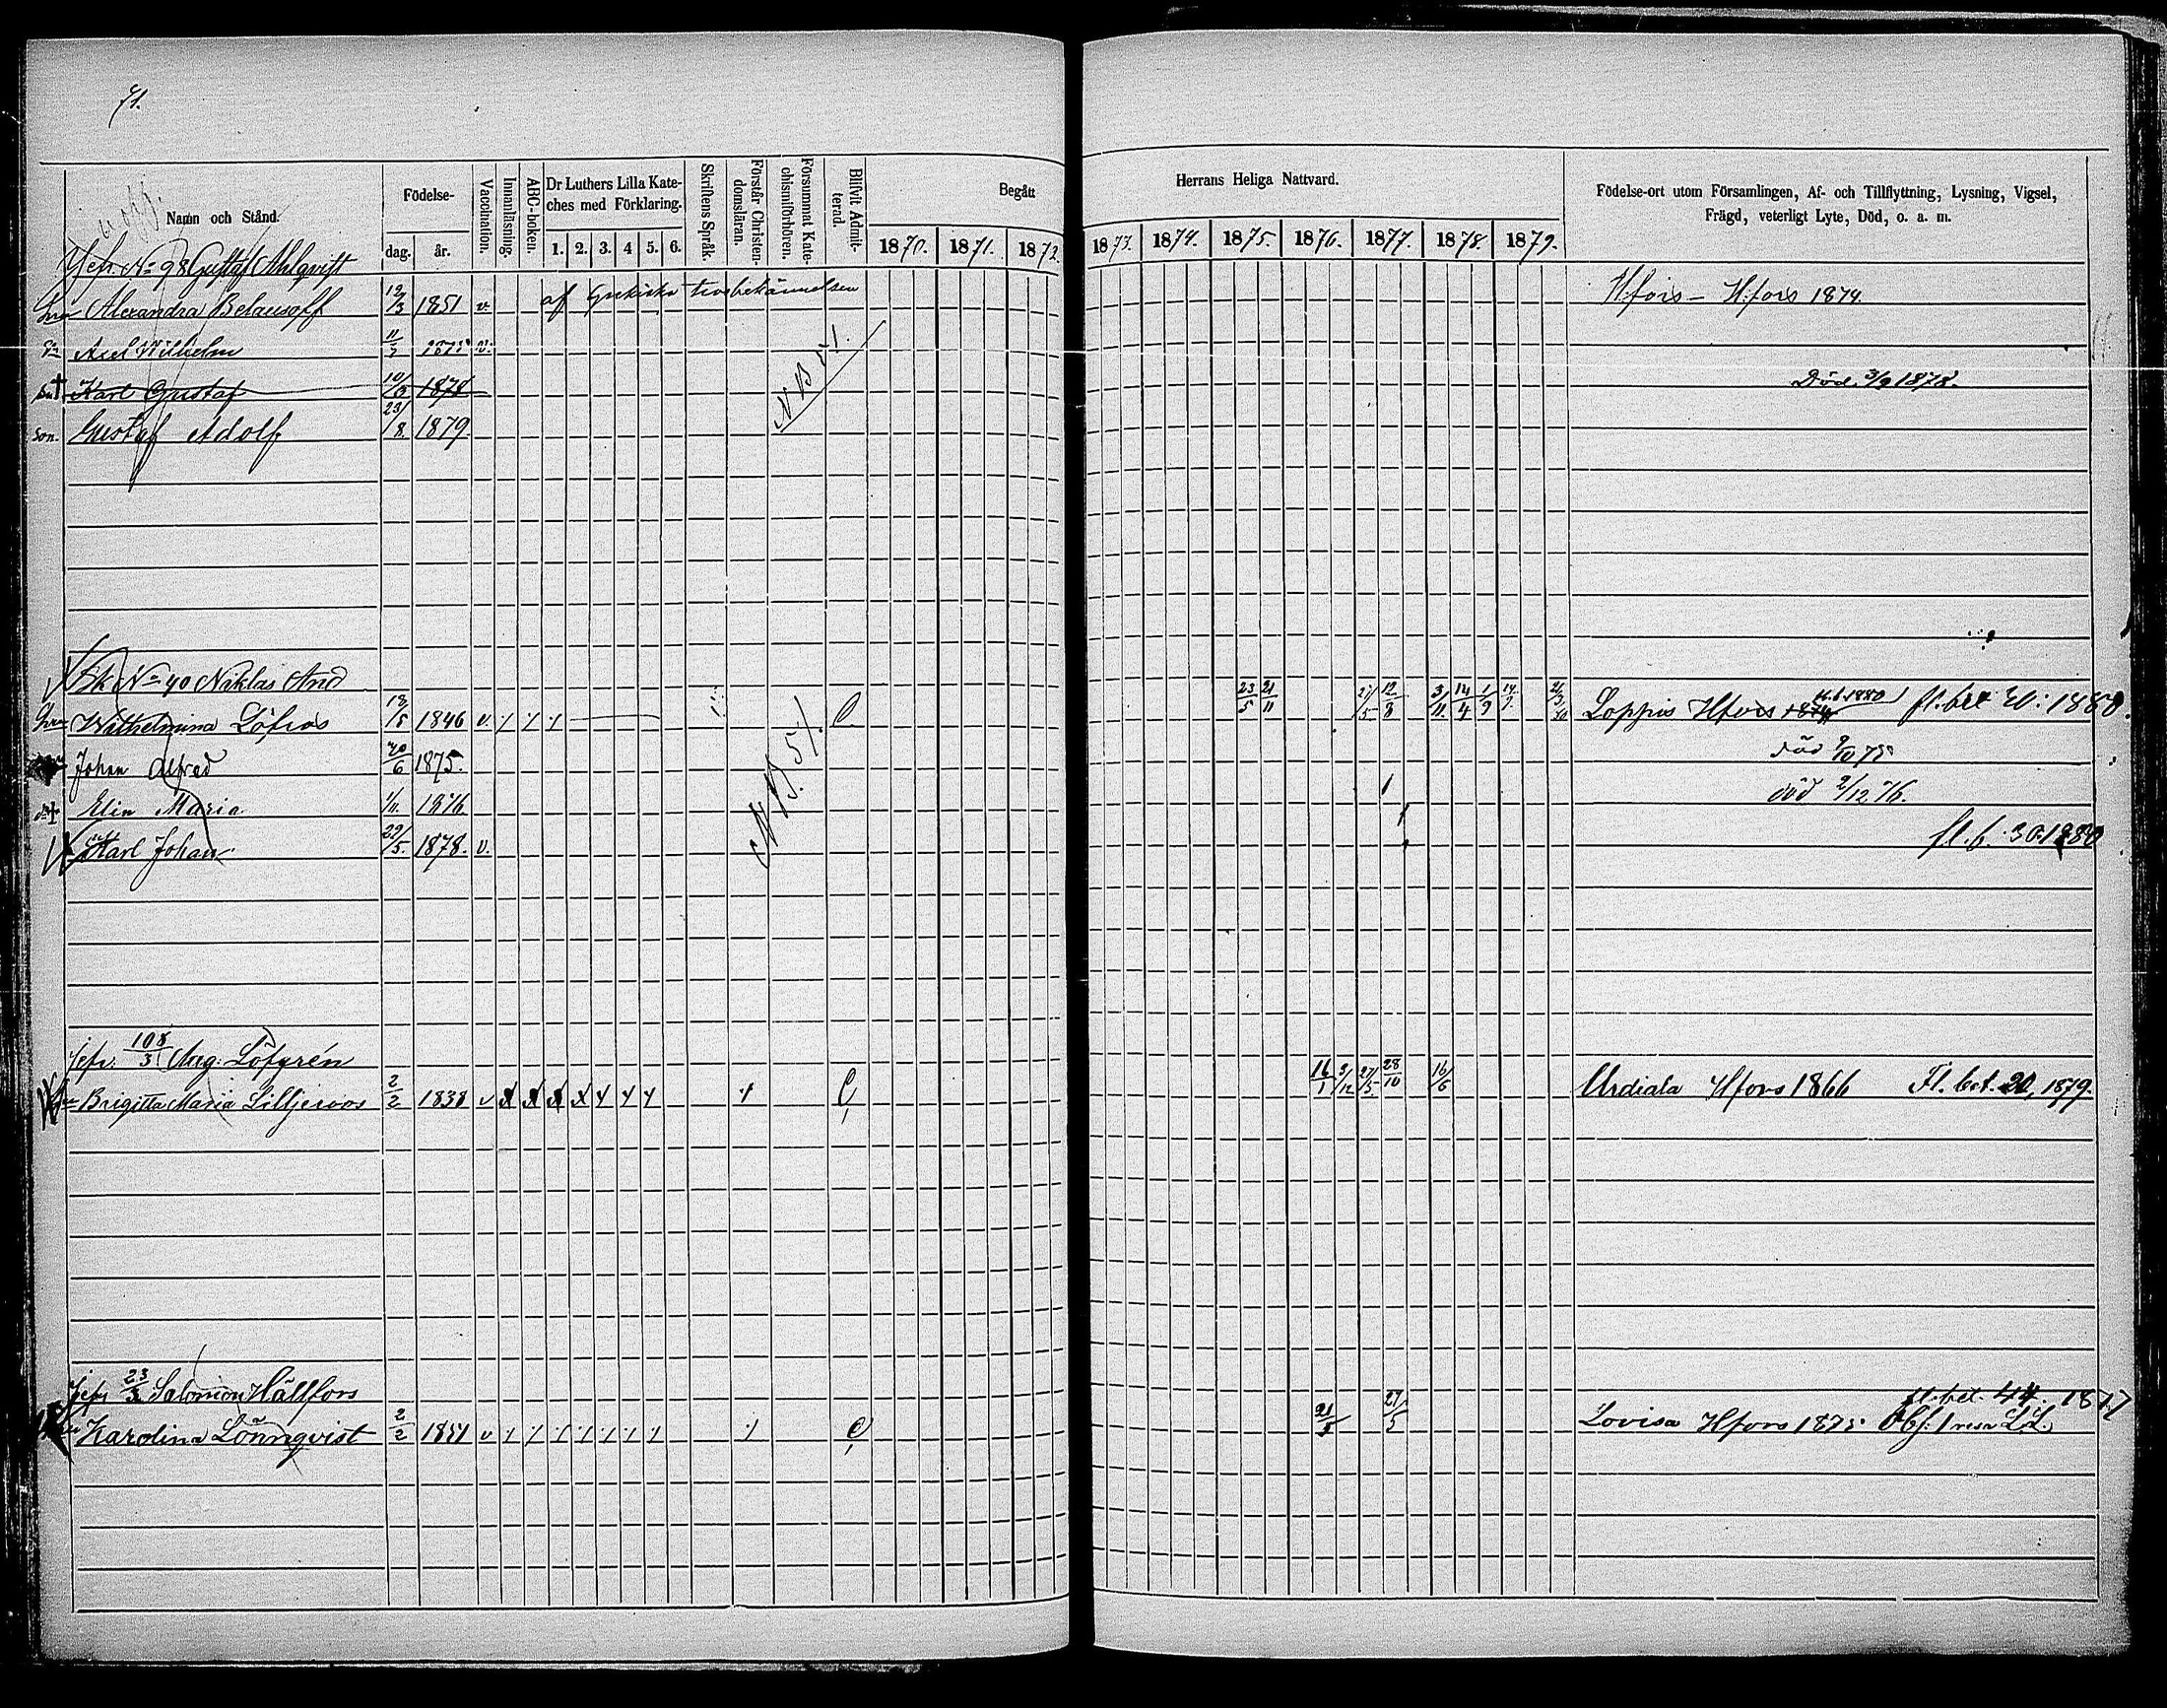 71.
Namn och Stånd.
Födelse-
dag. år.
Vaccination.
Innanläsning.
ABC-boken.
Dr Luthers Lilla Kate-
ches med Förklaring.
1. 2. 3. 4 5. 6.
Skriftens Språk.
Förstår Christen-
domsläran.
Försummat Kate-
chismiförhören.
Blifvit Admit-
terad.
Begått
1870. 1871. 1872.
Herrans Heliga Nattvard.
1873. 1874. 1875. 1876. 1877. 1878 1879.
Födelse-ort utom Församlingen, Af- och Tillflyttning, Lysning, Vigsel,
Frägd, veterligt Lyte, Död, o. a. m.
No 98 Gustaf Ahlqvist
Alexandra Belausoff 12/3 1851 v. af Grekiska trosbekännelsen H:fors - H:fors 1874.
Axel Wilhelm 1875 v.
Karl Gustaf 10/3 1878 Död. 3/9 1878.
son. Gustaf Adolf 23/8. 1879.
NB 5/.
No 40 Niklas And
Wilhelmina Löfros 18/5 1846 v. 23/5 21/11 27/5 12/8 3/11. 14/4 1/9 Loppis Hfors 1874 1880 fl. bet 30: 1880.
Johan Alfred 20/6 1875. död 9/10 75
Elin Maria 1/11. 1876. död 2/12 76.
Karl Johan 29/5. 1878. v. fl. b. 30. 1880
NB. 5/.
Jefr. 108/3 Aug: Löfgrén
Brigitta Maria Lilljeroos 2/2 1838 v 16/1 2/12 27/5. 28/10 16/6 Urdiala Hfors 1866 Fl. bet. 20, 1879.
Jefr 23/3 Salomon Hällfors
fl. bet. 44. 1877
Karolina Lönnqvist 2/2 1851 v 21/5 27/5 Lovisa Hfors 1875 Obf. 1 resa L.L.